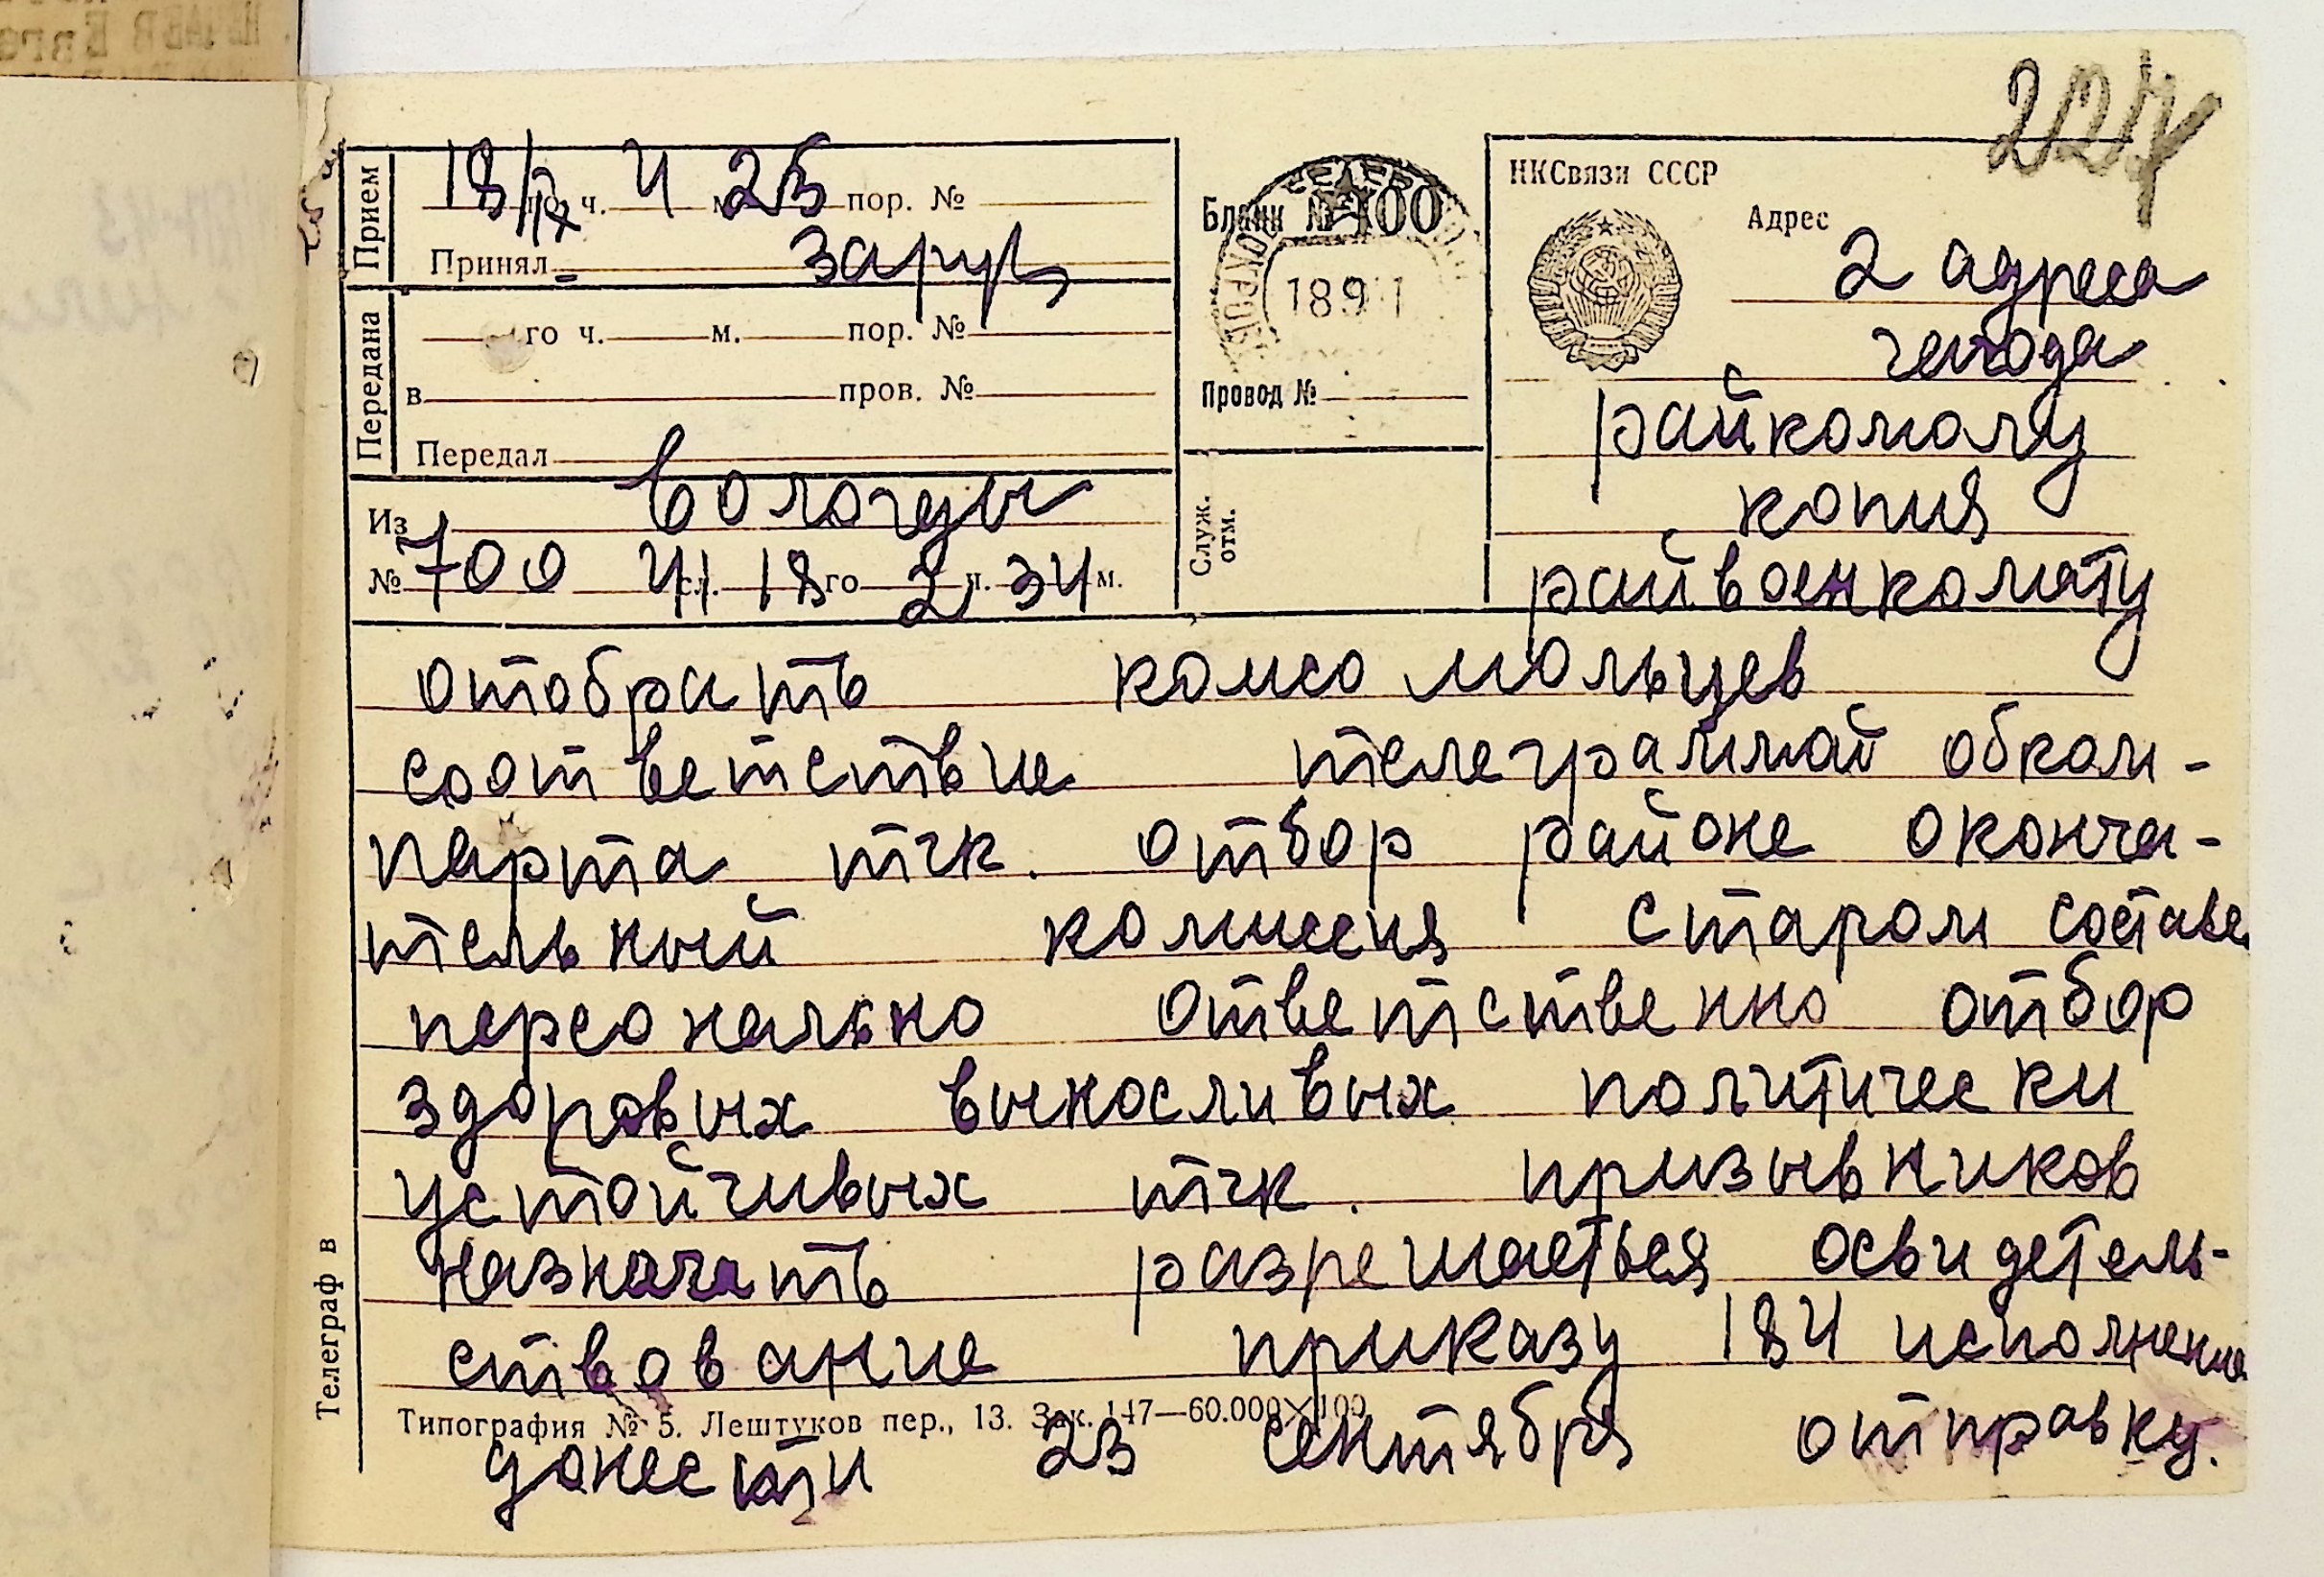 224
18/IX го ч. 4 м. 25 пор. №
Прием
Принял
Передана
го ч. м. пор. №
в пров. №
Передал
Из Вологды
№ 700 41 сл. 18 го 2 ч. 34 м.
Бланк № 400
1891
Провод №
Служ. отм.
НКСвязи СССР
Адрес
2 адреса
райкомолу
копия
райвоенкомату
отобрать комсомольцев
соответствие телеграммой обком-
парта тчк. отбор районе оконча-
тельный комиссия старом составе
персонально ответственно отбор
здоровых выносливых политически
устойчивых тчк. призывников
назначать разрешаеться освидетель-
ствование приказу 184 исполнение
Типография № 5. Лештуков пер., 13. Зак. 147—60.000×100
донести 23 сентября отправку.
Телеграф в